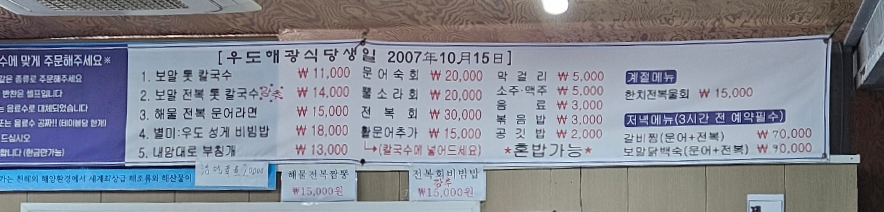 수에 맞게 주문해주세요※
같은 종류로 주문해주세요
반찬은 셀프입니다
음료수로 대체되었습니다
또는 음료수 공짜!! (테이블당 한개)
드십시오
합니다 (현금만가능)
[우도해광식당생일 2007年10月15日]
1. 보말 톳 칼국수 ₩11,000
2. 보말 전복 톳 칼국수 강추 ₩14,000
3. 해물 전복 문어라면 ₩15,000
4. 별미·우도 성게 비빔밥 ₩18,000
5. 내맘대로 부침개 ₩13,000
문어숙회 ₩20,000
뿔소라회 ₩20,000
전복회 ₩30,000
활문어추가 ₩15,000
↳(칼국수에 넣어드세요)
막걸리 ₩5,000
소주·맥주 ₩5,000
음료 ₩3,000
볶음밥 ₩3,000
공깃밥 ₩2,000
★혼밥가능★
계절메뉴
한치전복물회 ₩15,000
저녁메뉴(3시간 전 예약필수)
갈비찜(문어+전복) ₩70,000
보말닭백숙(문어+전복) ₩90,000
해물전복짬뽕
₩15,000원
전복회비빔밥
강추
₩15,000원